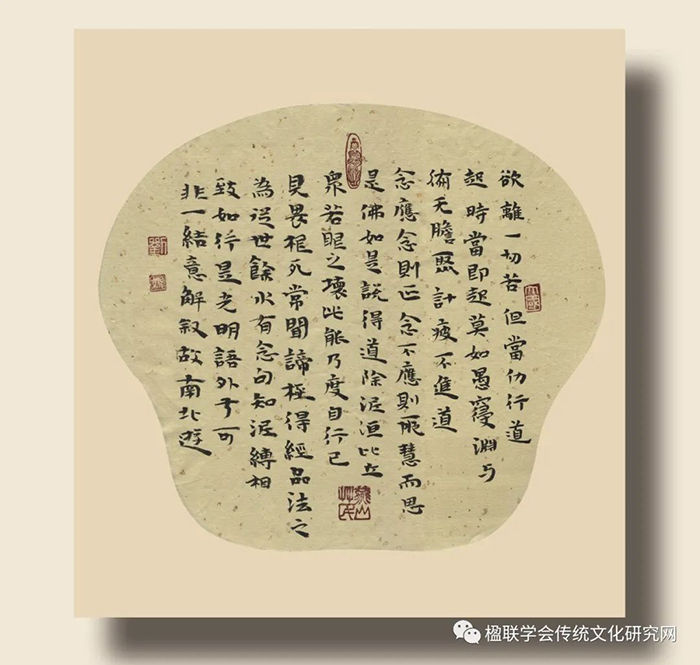 欲離一切苦但當仂行道
起時當即起莫如愚寢淵与
无計疲不進道
念應念則正念不應則邪慧而思
是佛如是說得道除泥洹比丘
眾若眼之壞能乃度自行已
見畏死常聞諦得經品法之
為從世餘水有念知泥縛相
致如行是光明語外可
非一結意解故南北遊
楹联学会传统文化研究网